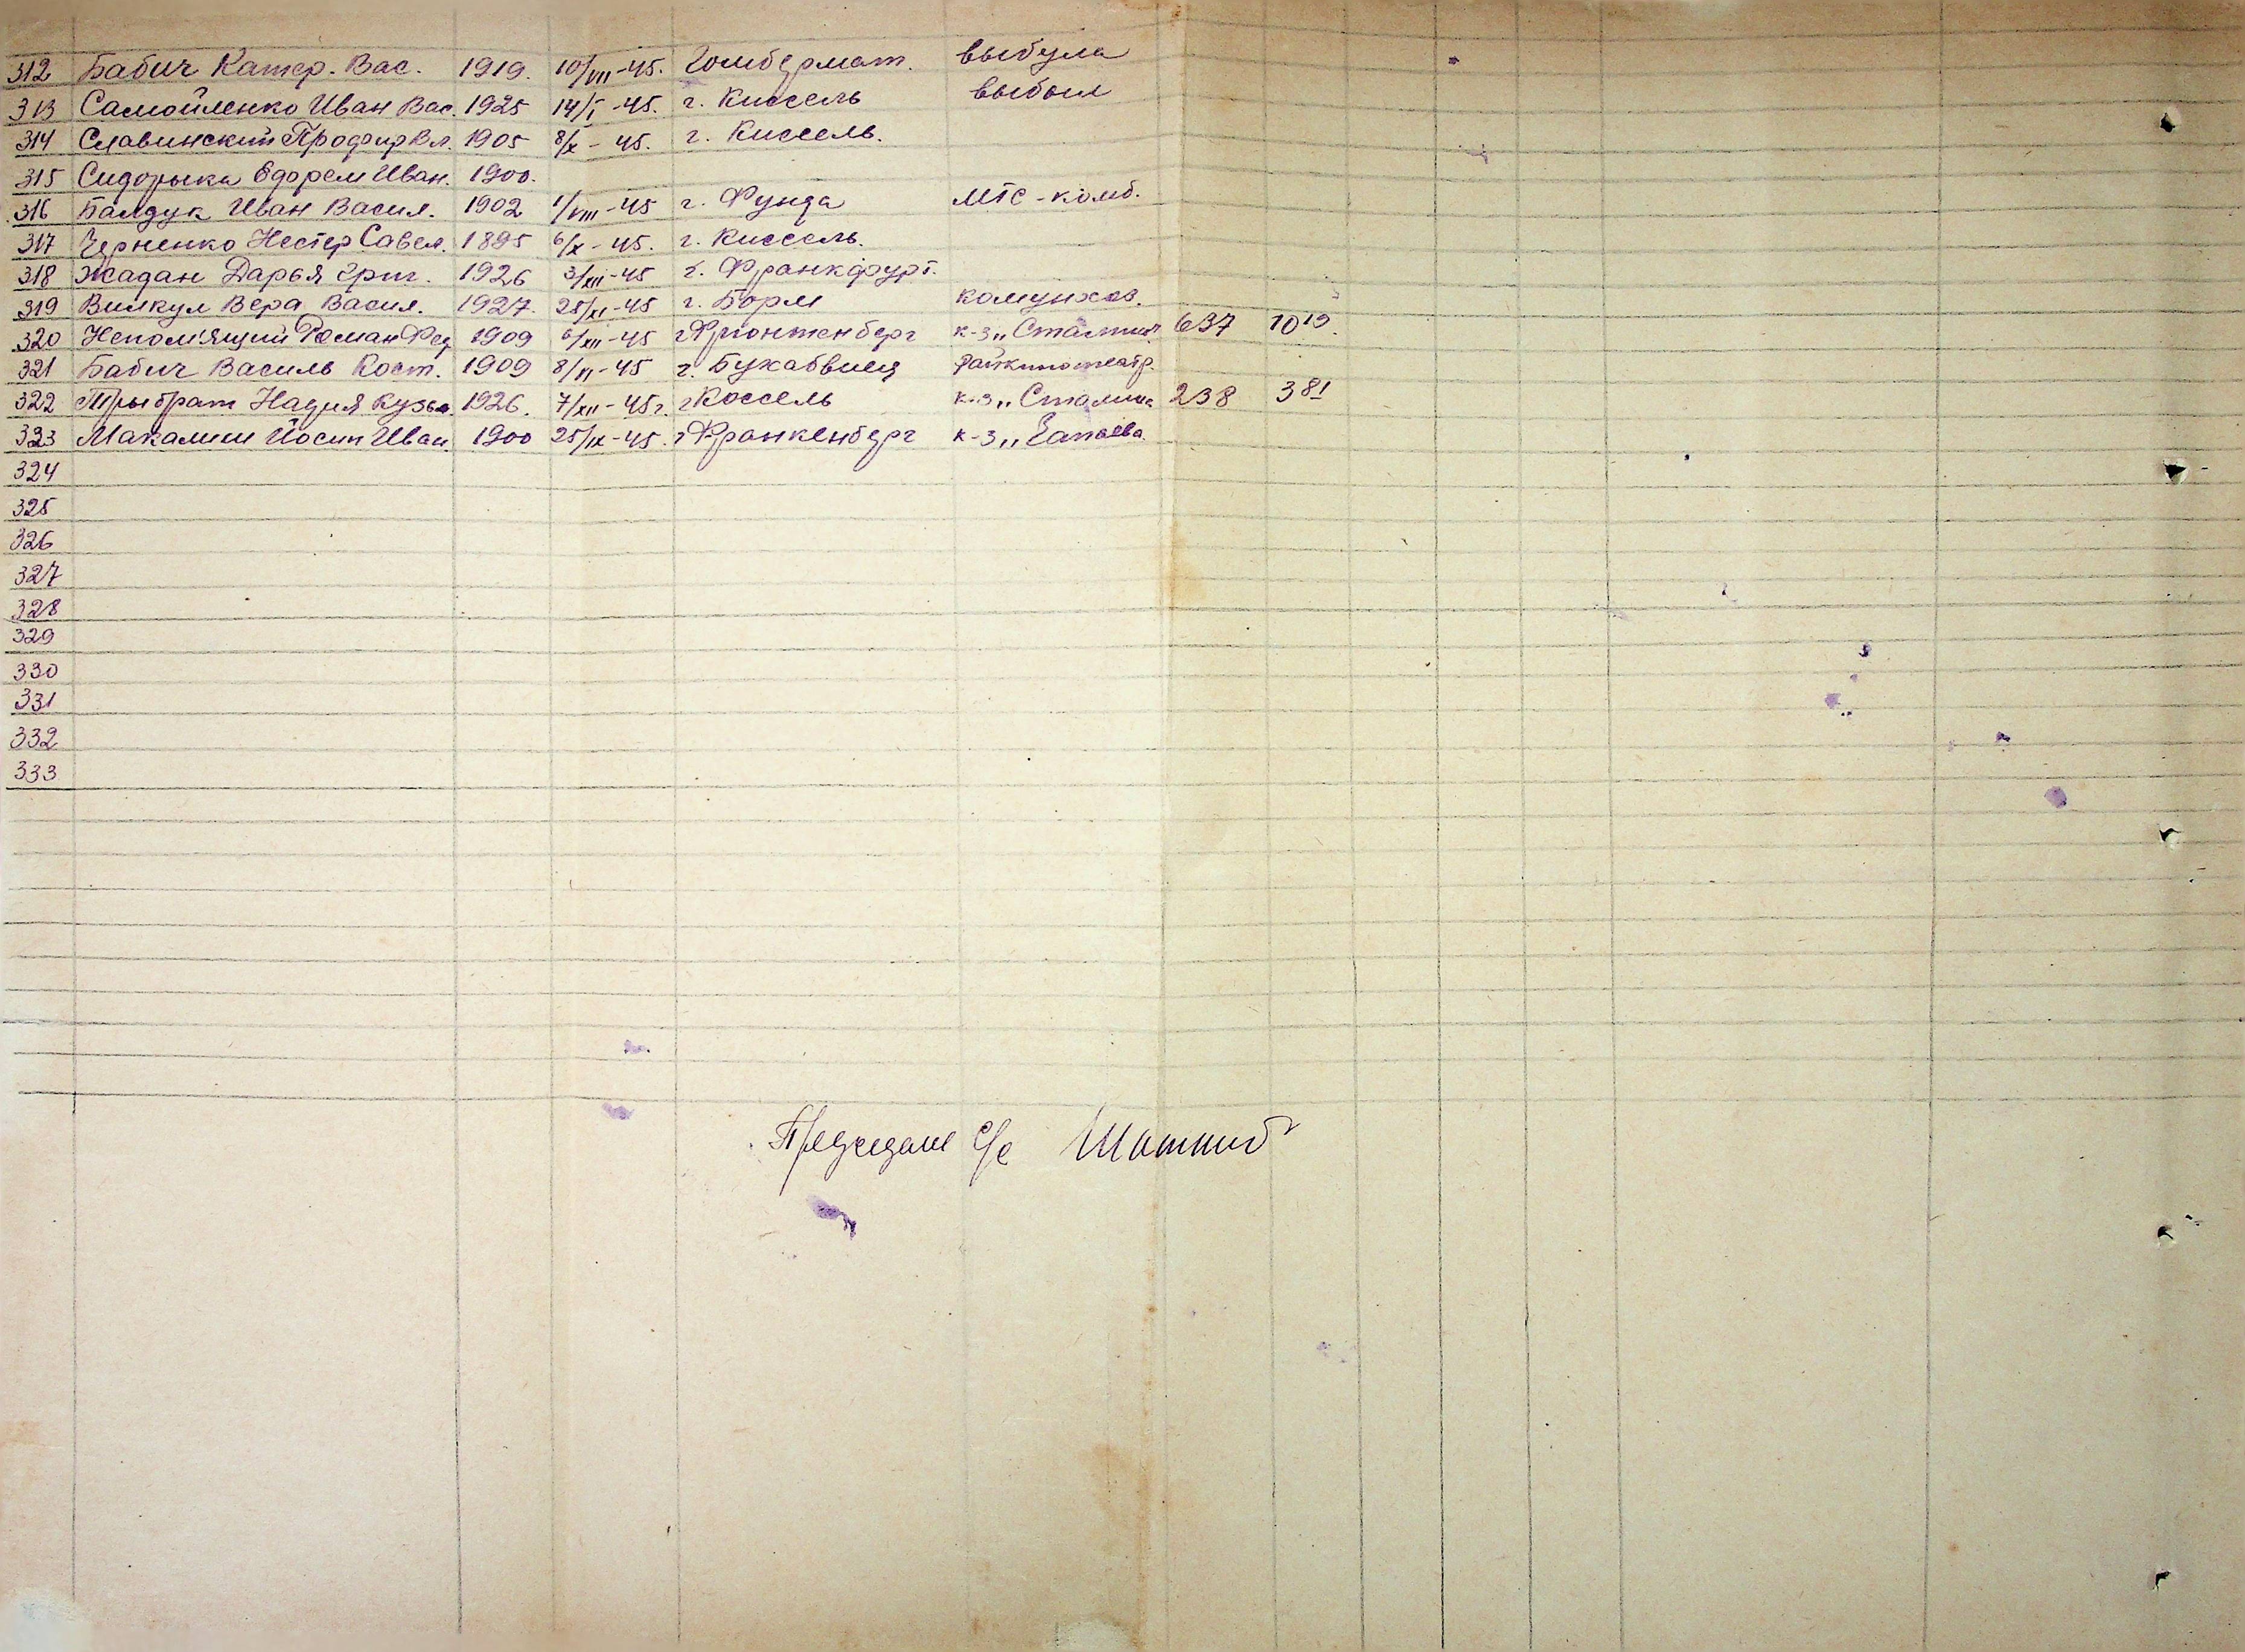 312 Бабич Катер. Вас. 1919. 10/VIII-45. Гомбермат. выбула
313 Самойленко Иван Вас. 1925 14/I-45. г. Киссель выбыл
314 Славинский Профир Вл. 1905 8/X-45. г. Киссель.
315 Сидорыка Ефрем Иван. 1900.
316 Балдук Иван Васил. 1902 1/VIII-45 г. Фунда МТС-комб.
317 Черненко Нестер Савел. 1895 6/X-45. г. Киссель.
318 Жадан Дарья Григ. 1926 3/XII-45 г. Франкфурт.
319 Вилкул Вера Васил. 1927. 25/XI-45 г. Борм комунхоз.
320 Непом'ящий Роман Фед 1909 6/XII-45 г. к-з „Сталина 637 1019.
321 Бабич Василь Кост. 1909 8/VI-45 г. Райкинотеатр.
322 Надия Кузьм. 1926. 7/XII-45г. г Коссель к-з „Сталина 238 381
323 Макалиш Йосип Иван. 1900 25/IX-45. г Франкенберг к-з „Чапаева.
324
325
326
327
328
329
330
331
332
333
с/с